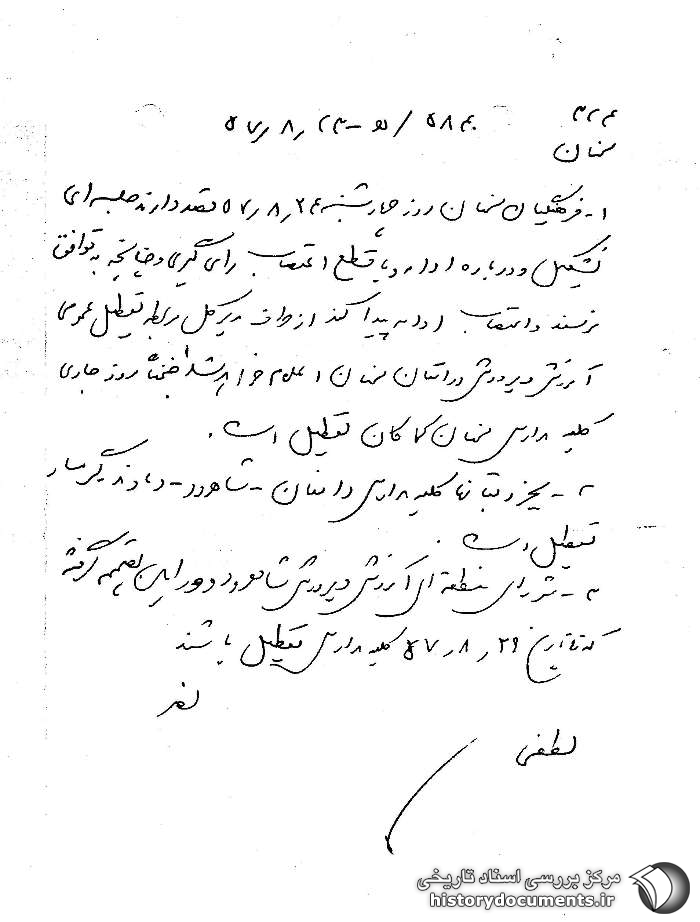 ۳۲۴
۵۸۴۰ / ۵ - ۲۳ر۸ر۵۷
سمنان
۱- فرهنگیان سمنان روز چهارشنبه ۲۴ر۸ر۵۷ قصد دارند جلسه ای
تشکیل و درباره ادامه و یا قطع اعتصاب رای گیری و چنانچه به توافق
نرسند و اعتصاب ادامه پیدا کند از طرف مدیر کل مربوطه تعطیل عمومی
آموزش و پرورش در استان سمنان اعلام خواهد شد ضمناً روز جاری
کلیه مدارس سمنان کماکان تعطیل است.
۲- بجز دبستانها کلیه مدارس دامغان - شاهرود - و گرمسار
تعطیل است.
۳- شورای منطقه ای آموزش و پرورش شاهرود تصمیم گرفته
که تا تاریخ ۲۹ر۸ر۵۷ کلیه مدارس تعطیل باشند
لطفی
مرکز بررسی اسناد تاریخی
historydocuments.ir